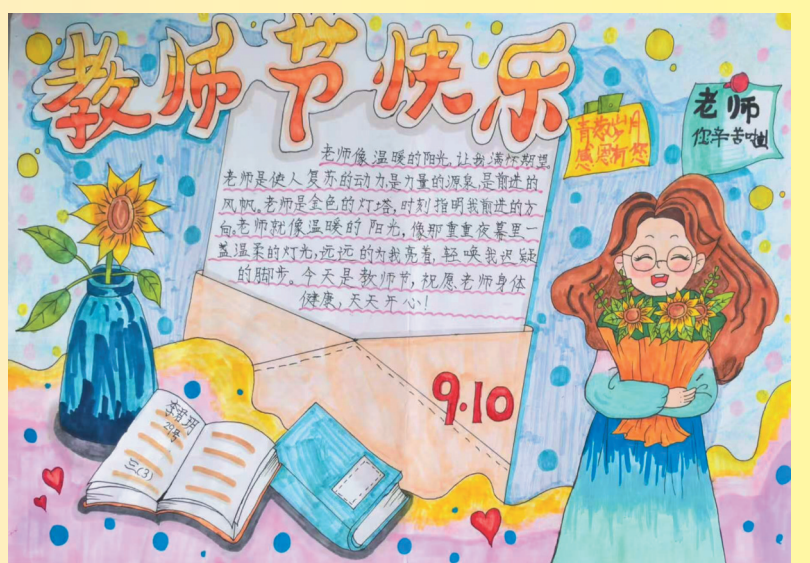 教师节快乐
老师像温暖的阳光,让我满怀期望。
老师是使人复苏的动力,是力量的源泉,是前进的
风帆。老师是金色的灯塔,时刻指明我前进的方
向。老师就像温暖的阳光,像那重重夜幕里一
盏温柔的灯光,远远的为我亮着,轻唤我迟疑
的脚步。今天是教师节,祝愿老师身体
健康,天天开心!
感恩有您
老师
您辛苦啦
9.10
李君玥
29号
三(3)